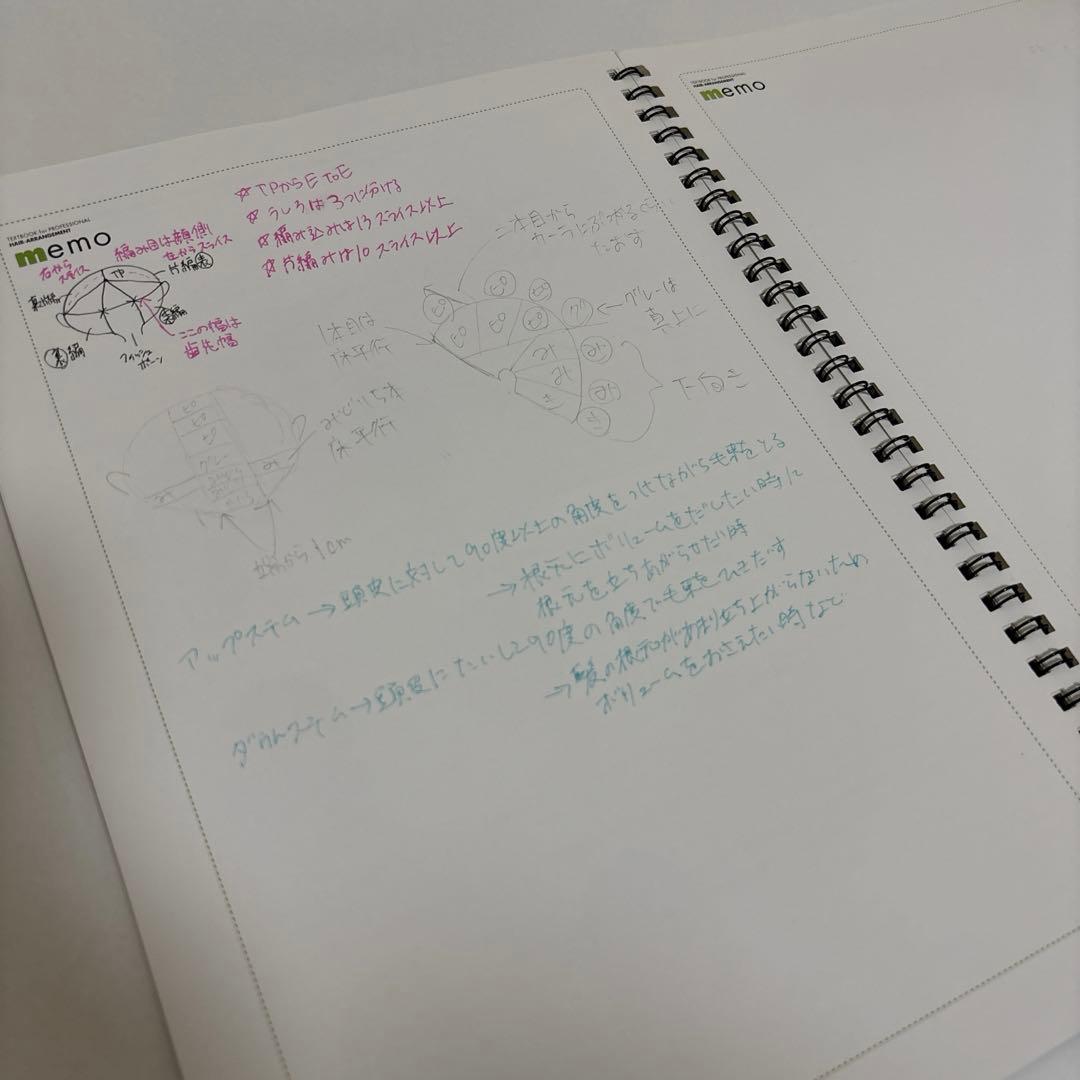 TEXTBOOK for PROFESSIONAL
HAIR-ARRANGEMENT
memo
☆TPからE to E
☆うしろは3つに分ける
☆編み込みは13スライス以上
☆片編みは10スライス以上
編み目は顔側
右から
スライス
左からスライス
TP
片編
表
裏編
裏
編
フィッシュ
ボーン
ここの幅は
歯先幅
二本目から
カーラ
1本目は
床平行
ピ
ピ
ピ
ピ
ピ
グ
←グレーは
真上に
み
み
み
み
き
き
下向き
ピ
ピ
ピ
グレー
み
み
床平行
から1cm
アップステム→頭皮に対して90度以上の角度をつけながら毛束をとる
→根元にボリュームをだしたい時に
根元を立ちあがらせたい時
ダウンステム→頭皮にたいして90度の角度で毛束をひきだす
→髪の根元があまり立ち上がらないため
ボリュームをおさえたい時など
TEXTBOOK for PROFESSIONAL
HAIR-ARRANGEMENT
memo